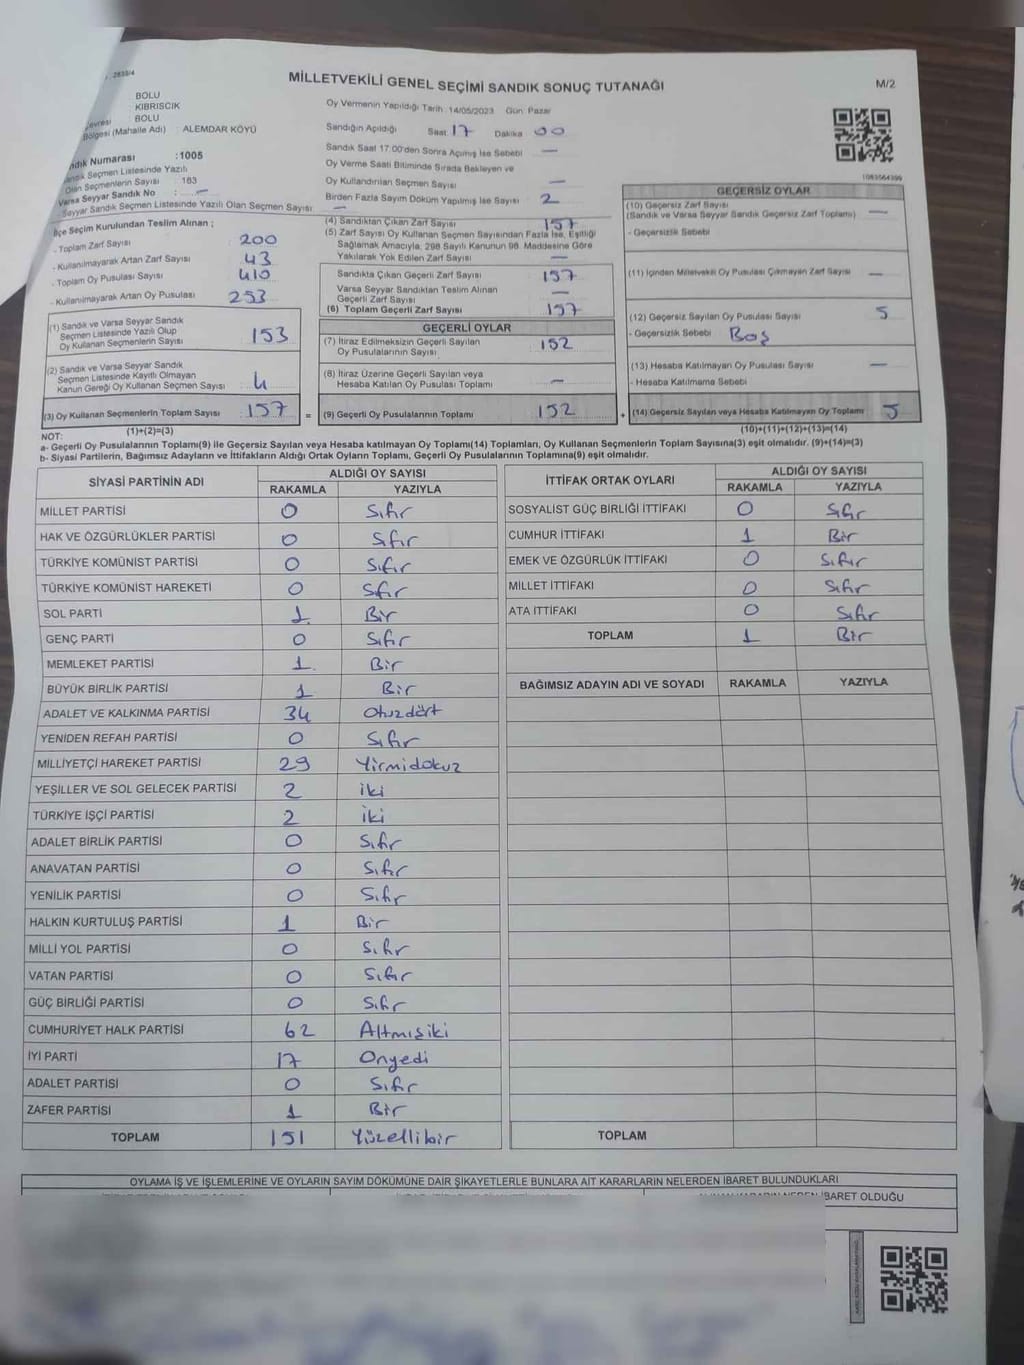 2839/4
MİLLETVEKİLİ GENEL SEÇİMİ SANDIK SONUÇ TUTANAĞI
M/2
BOLU
KIBRISCIK
Çevresi BOLU
Bölgesi (Mahalle Adı) ALEMDAR KÖYÜ
Sandık Numarası :1005
Sandık Seçmen Listesinde Yazılı
Olan Seçmenlerin Sayısı : 163
Varsa Seyyar Sandık No : —
- Seyyar Sandık Seçmen Listesinde Yazılı Olan Seçmen Sayısı: —
İlçe Seçim Kurulundan Teslim Alınan ;
- Toplam Zarf Sayısı 200
- Kullanılmayarak Artan Zarf Sayısı 43
- Toplam Oy Pusulası Sayısı 410
- Kullanılmayarak Artan Oy Pusulası 253
(1) Sandık ve Varsa Seyyar Sandık
Seçmen Listesinde Yazılı Olup
Oy Kullanan Seçmenlerin Sayısı : 153
(2) Sandık ve Varsa Seyyar Sandık
Seçmen Listesinde Kayıtlı Olmayan
Kanun Gereği Oy Kullanan Seçmen Sayısı : 4
(3) Oy Kullanan Seçmenlerin Toplam Sayısı : 157 =
(1)+(2)=(3)
Oy Vermenin Yapıldığı Tarih :14/05/2023 Gün Pazar
Sandığın Açıldığı Saat 17 Dakika 00
Sandık Saat 17:00'den Sonra Açılmış İse Sebebi —
Oy Verme Saati Bitiminde Sırada Bekleyen ve
Oy Kullandırılan Seçmen Sayısı —
Birden Fazla Sayım Döküm Yapılmış İse Sayısı 2
(4) Sandıktan Çıkan Zarf Sayısı 157
(5) Zarf Sayısı Oy Kullanan Seçmen Sayısından Fazla İse, Eşitliği
Sağlamak Amacıyla, 298 Sayılı Kanunun 98. Maddesine Göre
Yakılarak Yok Edilen Zarf Sayısı —
Sandıkta Çıkan Geçerli Zarf Sayısı 157
Varsa Seyyar Sandıktan Teslim Alınan
Geçerli Zarf Sayısı —
(6) Toplam Geçerli Zarf Sayısı 157
GEÇERLİ OYLAR
(7) İtiraz Edilmeksizin Geçerli Sayılan
Oy Pusulalarının Sayısı 152
(8) İtiraz Üzerine Geçerli Sayılan veya
Hesaba Katılan Oy Pusulası Toplamı —
(9) Geçerli Oy Pusulalarının Toplamı 152 +
1083564399
GEÇERSİZ OYLAR
(10) Geçersiz Zarf Sayısı
(Sandık ve Varsa Seyyar Sandık Geçersiz Zarf Toplamı) —
- Geçersizlik Sebebi
(11) İçinden Milletvekili Oy Pusulası Çıkmayan Zarf Sayısı —
(12) Geçersiz Sayılan Oy Pusulası Sayısı 5
- Geçersizlik Sebebi Boş
(13) Hesaba Katılmayan Oy Pusulası Sayısı —
- Hesaba Katılmama Sebebi
(14) Geçersiz Sayılan veya Hesaba Katılmayan Oy Toplamı 5
(10)+(11)+(12)+(13)=(14)
NOT:
a- Geçerli Oy Pusulalarının Toplamı(9) ile Geçersiz Sayılan veya Hesaba katılmayan Oy Toplamı(14) Toplamları, Oy Kullanan Seçmenlerin Toplam Sayısına(3) eşit olmalıdır. (9)+(14)=(3)
b- Siyasi Partilerin, Bağımsız Adayların ve İttifakların Aldığı Ortak Oyların Toplamı, Geçerli Oy Pusulalarının Toplamına(9) eşit olmalıdır.
SİYASİ PARTİNİN ADI ALDIĞI OY SAYISI
RAKAMLA YAZIYLA
MİLLET PARTİSİ 0 Sıfır
HAK VE ÖZGÜRLÜKLER PARTİSİ 0 Sıfır
TÜRKİYE KOMÜNİST PARTİSİ 0 Sıfır
TÜRKİYE KOMÜNİST HAREKETİ 0 Sıfır
SOL PARTİ 1 Bir
GENÇ PARTİ 0 Sıfır
MEMLEKET PARTİSİ 1 Bir
BÜYÜK BİRLİK PARTİSİ 1 Bir
ADALET VE KALKINMA PARTİSİ 34 Otuzdört
YENİDEN REFAH PARTİSİ 0 Sıfır
MİLLİYETÇİ HAREKET PARTİSİ 29 Yirmidokuz
YEŞİLLER VE SOL GELECEK PARTİSİ 2 iki
TÜRKİYE İŞÇİ PARTİSİ 2 iki
ADALET BİRLİK PARTİSİ 0 Sıfır
ANAVATAN PARTİSİ 0 Sıfır
YENİLİK PARTİSİ 0 Sıfır
HALKIN KURTULUŞ PARTİSİ 1 Bir
MİLLİ YOL PARTİSİ 0 Sıfır
VATAN PARTİSİ 0 Sıfır
GÜÇ BİRLİĞİ PARTİSİ 0 Sıfır
CUMHURİYET HALK PARTİSİ 62 Altmışiki
İYİ PARTİ 17 Onyedi
ADALET PARTİSİ 0 Sıfır
ZAFER PARTİSİ 1 Bir
TOPLAM 151 Yüzellibir
İTTİFAK ORTAK OYLARI ALDIĞI OY SAYISI
RAKAMLA YAZIYLA
SOSYALİST GÜÇ BİRLİĞİ İTTİFAKI 0 Sıfır
CUMHUR İTTİFAKI 1 Bir
EMEK VE ÖZGÜRLÜK İTTİFAKI 0 Sıfır
MİLLET İTTİFAKI 0 Sıfır
ATA İTTİFAKI 0 Sıfır
TOPLAM 1 Bir
BAĞIMSIZ ADAYIN ADI VE SOYADI RAKAMLA YAZIYLA
TOPLAM
OYLAMA İŞ VE İŞLEMLERİNE VE OYLARIN SAYIM DÖKÜMÜNE DAİR ŞİKAYETLERLE BUNLARA AİT KARARLARIN NELERDEN İBARET BULUNDUKLARI
İBARET OLDUĞU